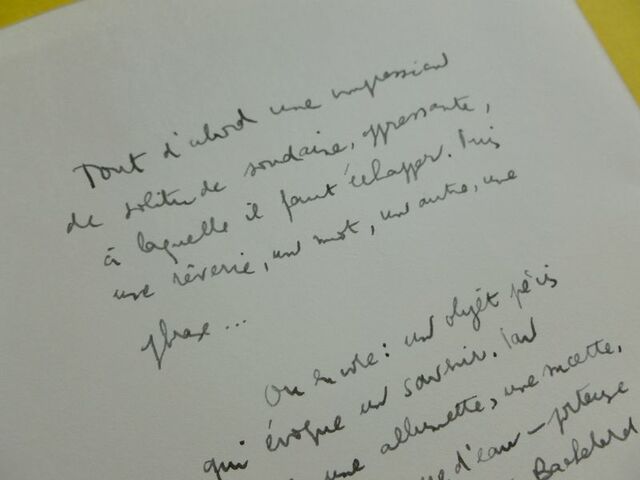 Tout d'abord une impression
de solitude soudaine, oppressante,
à laquelle il faut échapper. Puis
une rêverie, un mot, un autre, une
phrase ...
Ou encore : un objet précis
qui évoque un souvenir. Par
une allumette, une mouette,
d'eau - porteuse
Bachelard